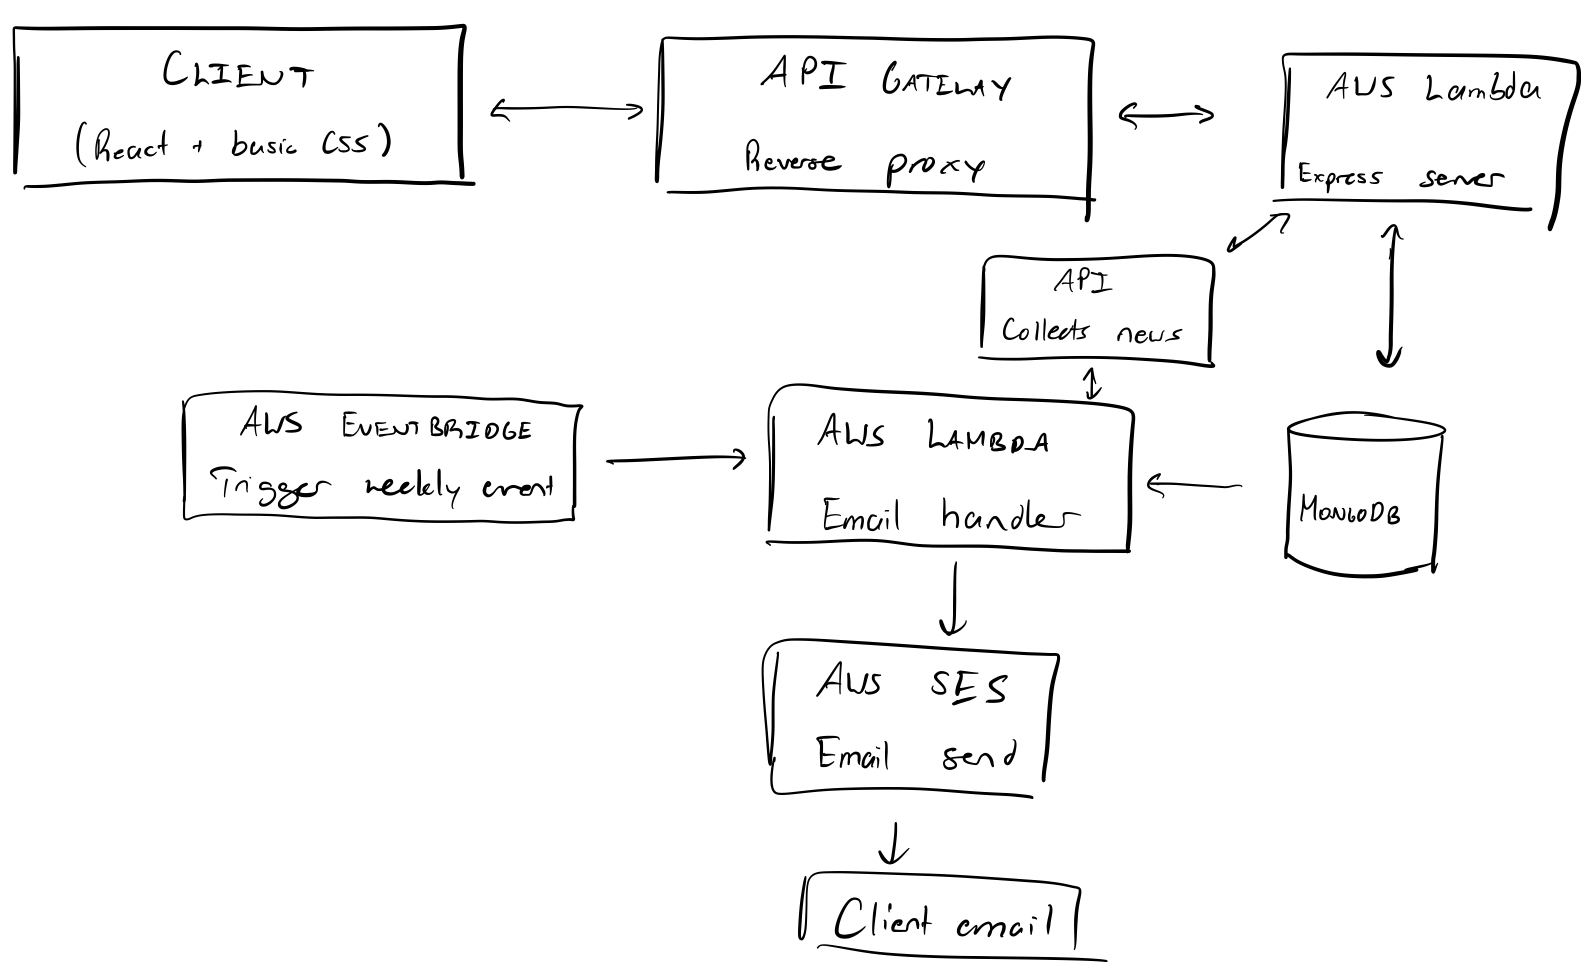 CLIENT
(React + basic CSS)
API GATEWAY
Reverse proxy
AWS Lambda
Express server
API
Collects news
AWS EVENTBRIDGE
Trigger weekly event
AWS LAMBDA
Email handler
MONGODB
AWS SES
Email send
Client email